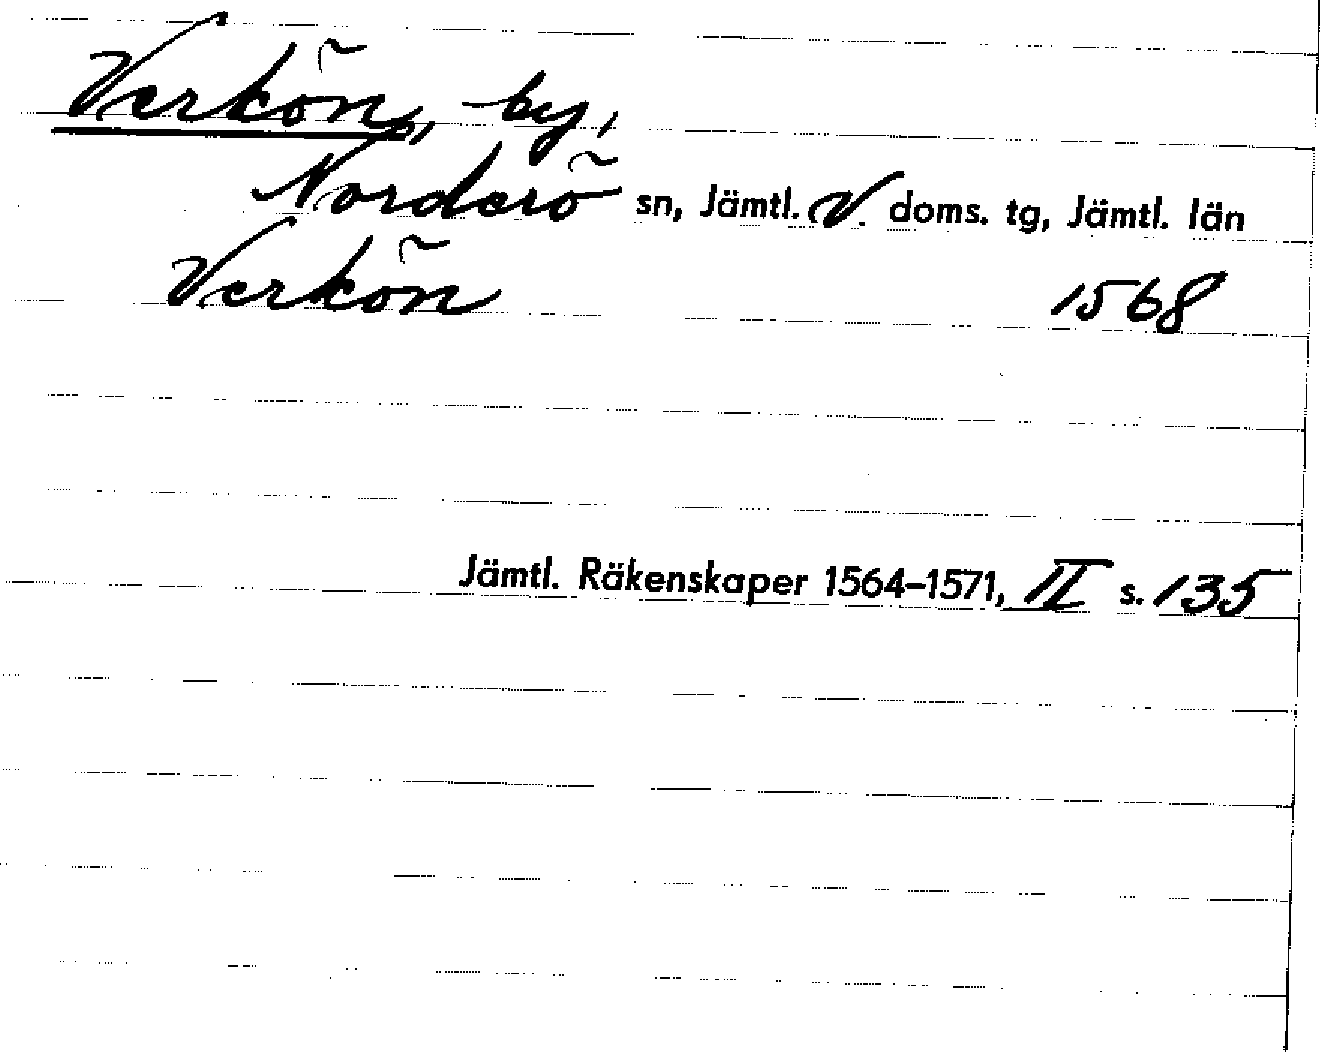 Verkön, by,
Norderö sn, Jämtl. V. doms. tg, Jämtl. län
Verkön 1568
Jämtl. Räkenskaper 1564–1571, II s. 135